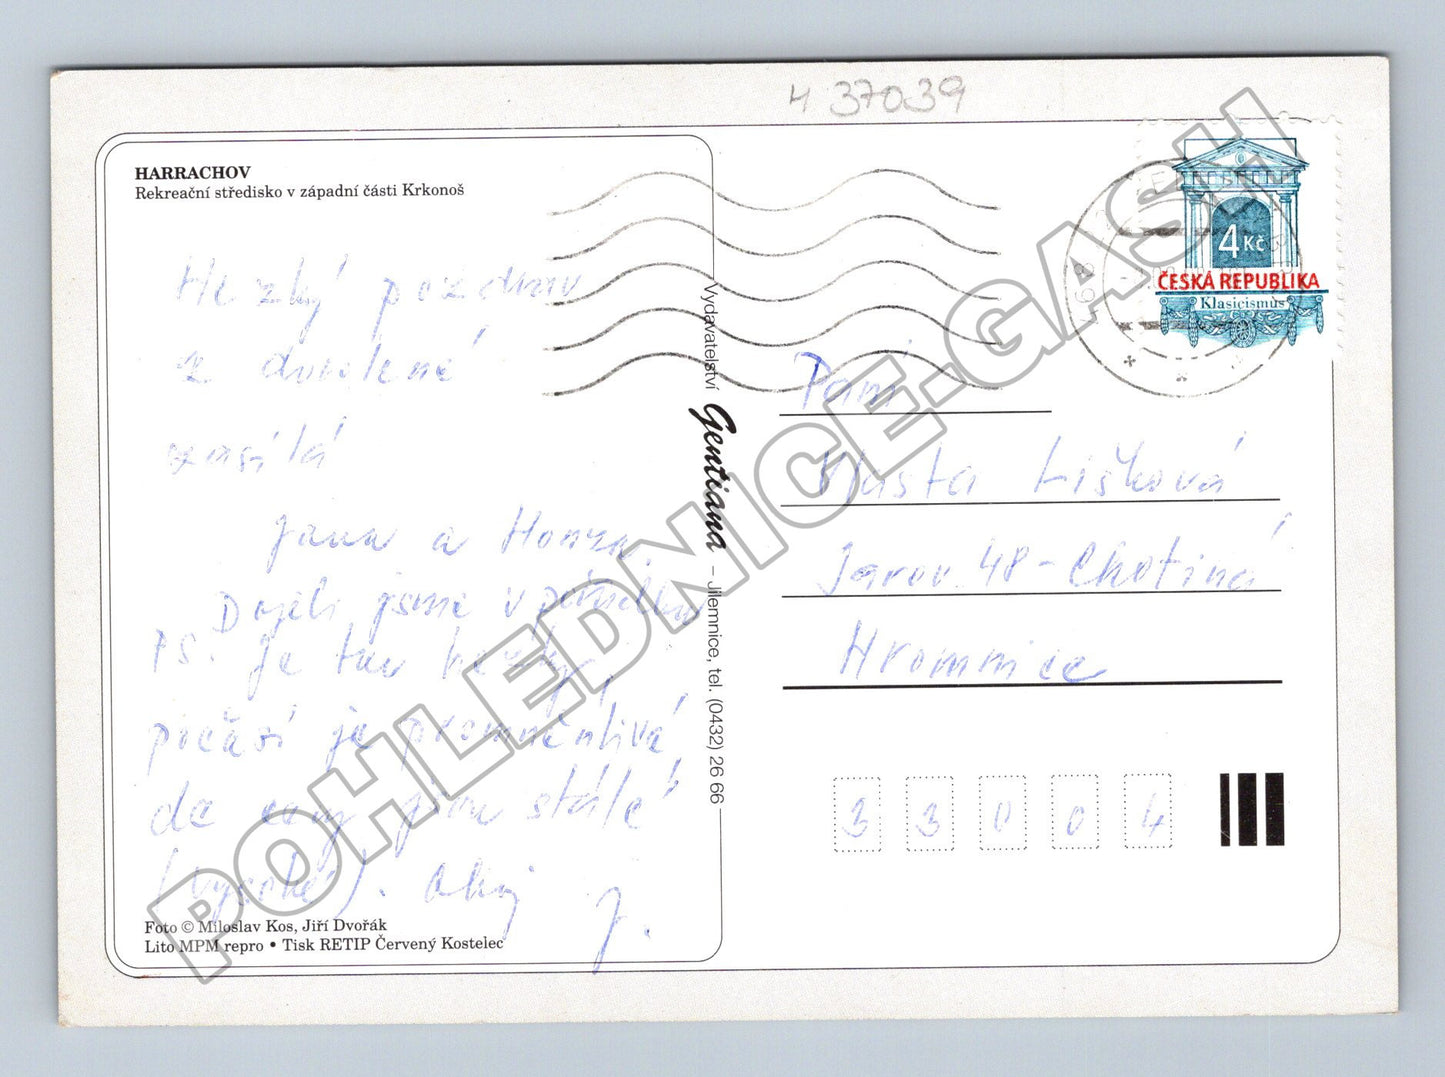 4 37039
HARRACHOV
Rekreační středisko v západní části Krkonoš
Hezký pozdrav
z dovolené
zasílá
Jana a Honza.
Dojeli jsme v pořádku
PS. Je tu hezky,
počasí je proměnlivé,
ceny jsou stále
(vysoké). Ahoj J.
Foto © Miloslav Kos, Jiří Dvořák
Lito MPM repro • Tisk RETIP Červený Kostelec
Vydavatelství Gentiana – Jilemnice, tel. (0432) 26 66
4 Kč
ČESKÁ REPUBLIKA
Klasicismus
Paní
Vlasta Lišková
Jarov 48 - Chotiná
Hromnice
33004
POHLEDNICE-GASH